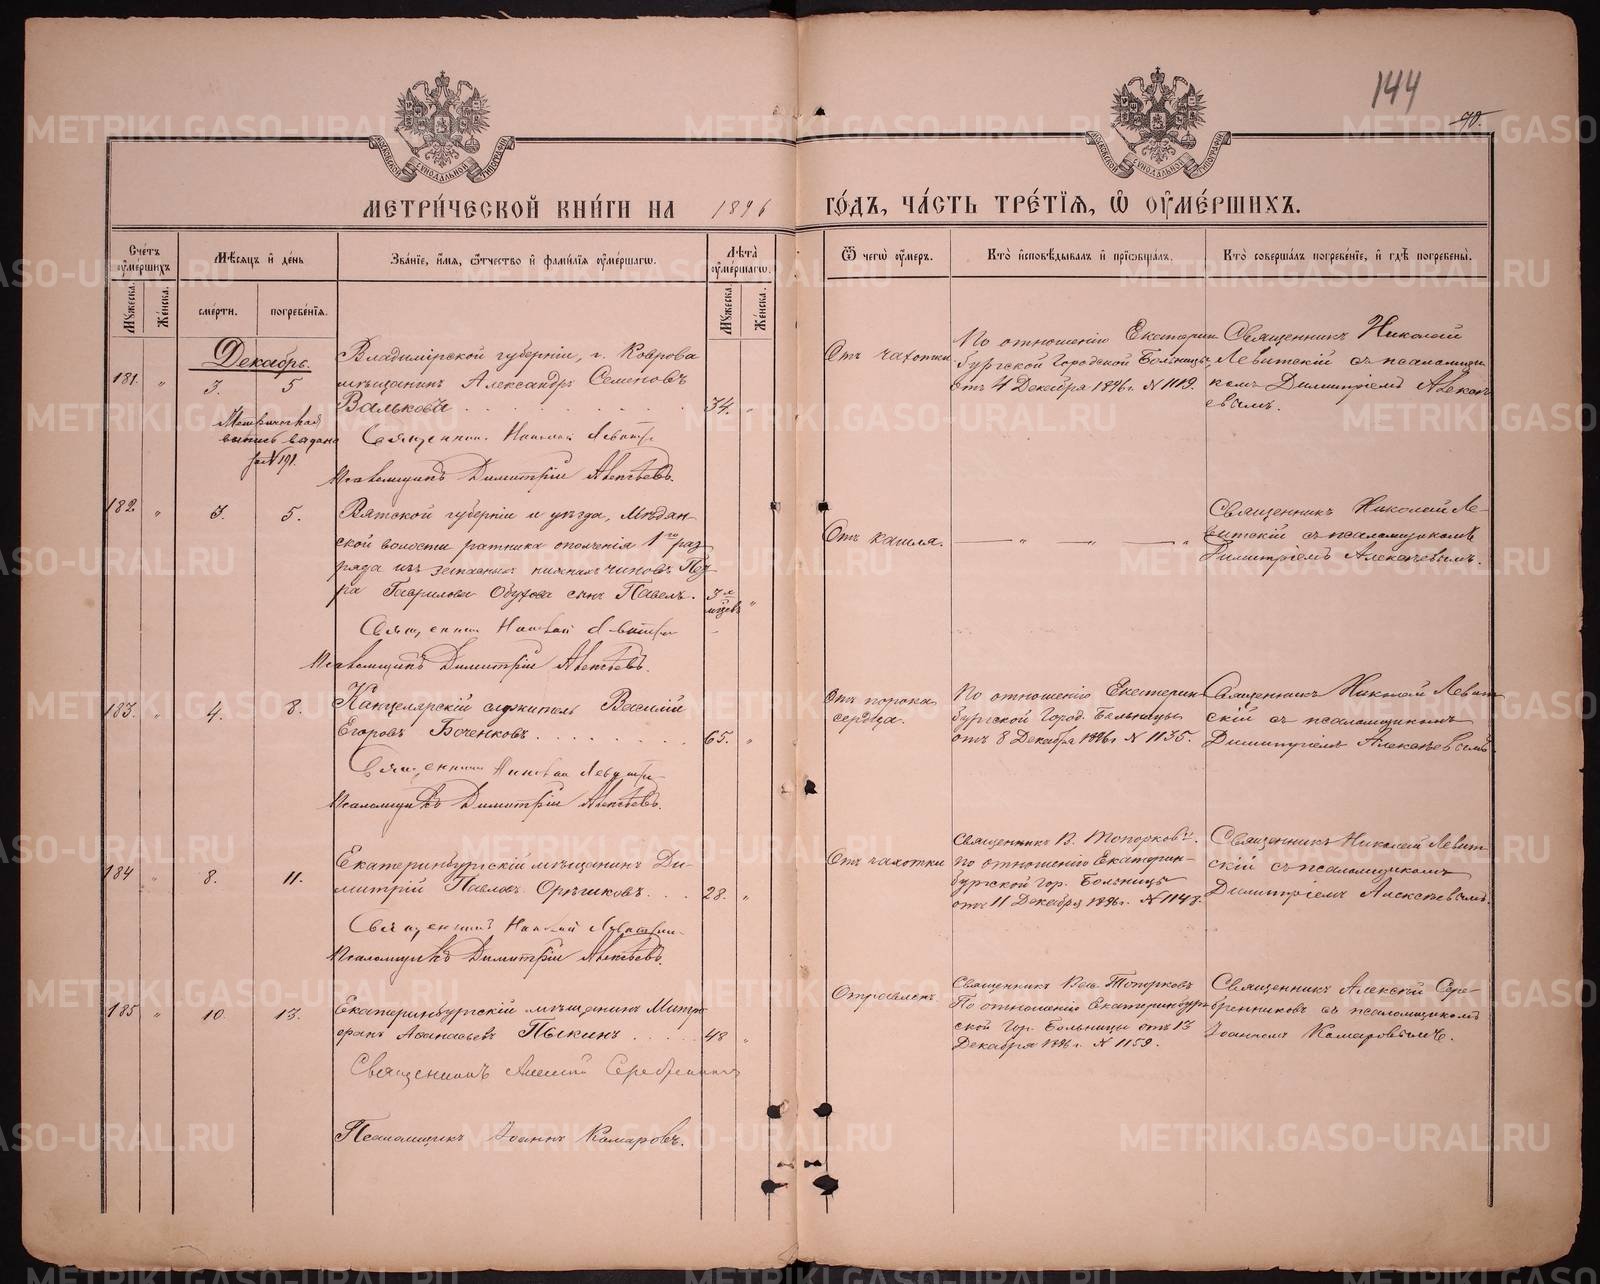 144
90.
МЕТРИ́ЧЕСКОЙ КНИ́ГИ НА 1896 ГО́ДЪ, ЧА́СТЬ ТРЕ́ТІѦ, Ѿ ОУМЕ́РШИХЪ.
Сче́тъ оуме́ршихъ
Мѣ́сяцъ и҆ де́нь
Зва́нїе, и҆́мя, ѻ҆́тчество и҆ фами́лїя оуме́ршагѡ.
Лѣ́та оуме́ршагѡ.
Ѿ чегѡ̀ оу́меръ.
Кто̀ и҆сповѣ́дывалъ и҆ прїѡбща́лъ.
Кто̀ соверша́лъ погребе́нїе, и҆ гдѣ̀ погребены̀.
Му́жеска.
Же́нска.
сме́рти.
погребе́нїя.
Му́жеска.
Же́нска.
Декабрь.
181. " 3. 5
Владимірской губерніи, г. Коврова
мѣщанинъ Александръ Семеновъ
Вальковъ 34. "
Метрическая
выпись выдана
за № 191.
Священникъ Николай Левитскій
Псаломщикъ Димитрій Алексѣевъ.
Отъ чахотки
По отношенію Екатерин
бургской Городской Больницы
отъ 4 Декабря 1896 г. № 1119.
Священникъ Николай
Левитскій съ псаломщи
комъ Димитріемъ Алексѣ
евымъ.
182. " 3. 5.
Вятской губерніи и уѣзда, Мѣдян-
ской волости ратника ополченія 1го раз-
ряда изъ запасныхъ нижнихъ чиновъ Пет
ра Гаврилова Обухова сынъ Павелъ. 3х мѣсцевъ "
Священникъ Николай Левитскій
Псаломщикъ Димитрій Алексѣевъ.
Отъ кашля.
— " — " — "
Священникъ Николай Ле-
витскій съ псаломщикомъ
Димитріемъ Алексѣевымъ.
183. " 4. 8.
Канцелярскій служитель Василій
Егоровъ Боченковъ 65. "
Священникъ Николай Левитскій
Псаломщикъ Димитрій Алексѣевъ.
Отъ порока
сердца.
По отношенію Екатерин
бургской Город. Больницы
отъ 8 Декабря 1896 г № 1135.
Священникъ Николай Левит
скій съ псаломщикомъ
Димитріемъ Алексѣевымъ.
184 " 8. 11.
Екатеринбургскій мѣщанинъ Ди-
митрій Павловъ Орѣшковъ. 28. "
Священникъ Николай Левитскій
Псаломщикъ Димитрій Алексѣевъ.
Отъ чахотки
Священникъ В. Топорковъ.
по отношенію Екатерин-
бургской Гор. Больницы
отъ 11 Декабря 1896 г. № 1148.
Священникъ Николай Левит
скій съ псаломщикомъ
Димитріемъ Алексѣевымъ.
185 " 10. 13.
Екатеринбургскій мѣщанинъ Митро
фанъ Афанасьевъ Пыкинъ 48 "
Священникъ Алексій Серебренниковъ
Псаломщикъ Іоаннъ Комаровъ.
Отравленъ.
Священникъ Топорковъ
По отношенію Екатеринбург
ской Гор. Больницы отъ 13
Декабря 1896 г. № 1159.
Священникъ Алексій Сере-
бренниковъ съ псаломщикомъ
Іоанномъ Комаровымъ.
METRIKI.GASO-URAL.RU